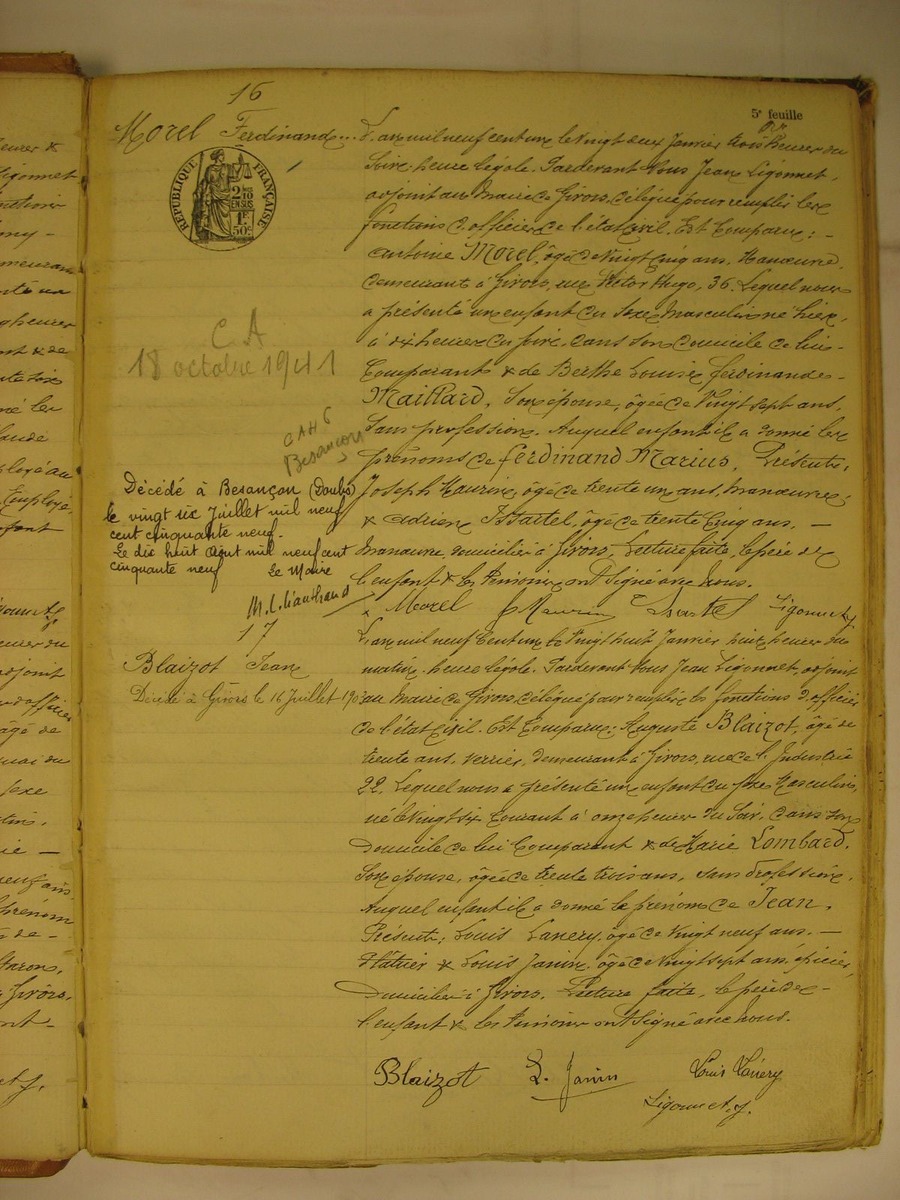 16
5e feuille
Morel Ferdinand
RÉPUBLIQUE FRANÇAISE
2/10 EN SUS
1F 50c
L'an mil neuf cent un le vingt deux Janvier trois heures du
Soir, heure légale. Pardevant Nous Jean Ligonnet,
adjoint au Maire de Givors, délégué pour remplir les
fonctions d'officier de l'état civil. Est Comparu : -
Antoine Morel, âgé de Vingt cinq ans, Manœuvre,
demeurant à Givors, rue Victor Hugo, 36. Lequel nous
a présenté un enfant du Sexe Masculin né hier,
à dix heures du soir, dans son domicile de lui-
Comparant & de Berthe Louise ferdinande-
Maillard, Son épouse, âgée de Vingt sept ans,
Sans profession. Auquel enfant il a donné les
prénoms de ferdinand Marius. Présents:
Joseph Maurin, âgé de trente un ans, manœuvre,
& Adrien, âgé de trente Cinq ans. -
Manœuvre, domiciliés à Givors. Lecture faite, le père de
l'enfant & les Témoins ont Signé avec Nous.
Morel Maurin Ligonnet
C A
18 octobre 1941
Besançon
Décédé à Besançon (Doubs)
le vingt six Juillet mil neuf
cent cinquante neuf.
Le dix huit Août mil neuf cent
cinquante neuf Le Maire
17
Blaizot Jean
Décédé à Givors le 16 Juillet
L'an mil neuf Cent un le Vingt huit Janvier heures du
matin, heure légale. Pardevant Nous Jean Ligonnet, adjoint
au Maire de Givors, délégué pour remplir les fonctions d'officier
de l'état Civil. Est Comparu: Auguste Blaizot, âgé de
trente ans, verrier, demeurant à Givors, rue de l'Industrie
22. Lequel nous a présenté un enfant du Sexe Masculin,
né le Vingt six Courant à onze heures du Soir, dans son
domicile de lui Comparant & de Marie Lombard,
Son épouse, âgée de trente trois ans, Sans Profession.
Auquel enfant il a donné le prénom de Jean.
Présents: Louis, âgé de Vingt neuf ans. -
Plâtrier & Louis Janin, âgé de Vingt sept ans, épicier,
domiciliés à Givors. Lecture faite, le père de -
l'enfant & les Témoins ont Signé avec Nous.
Blaizot L. Janin Louis
Ligonnet